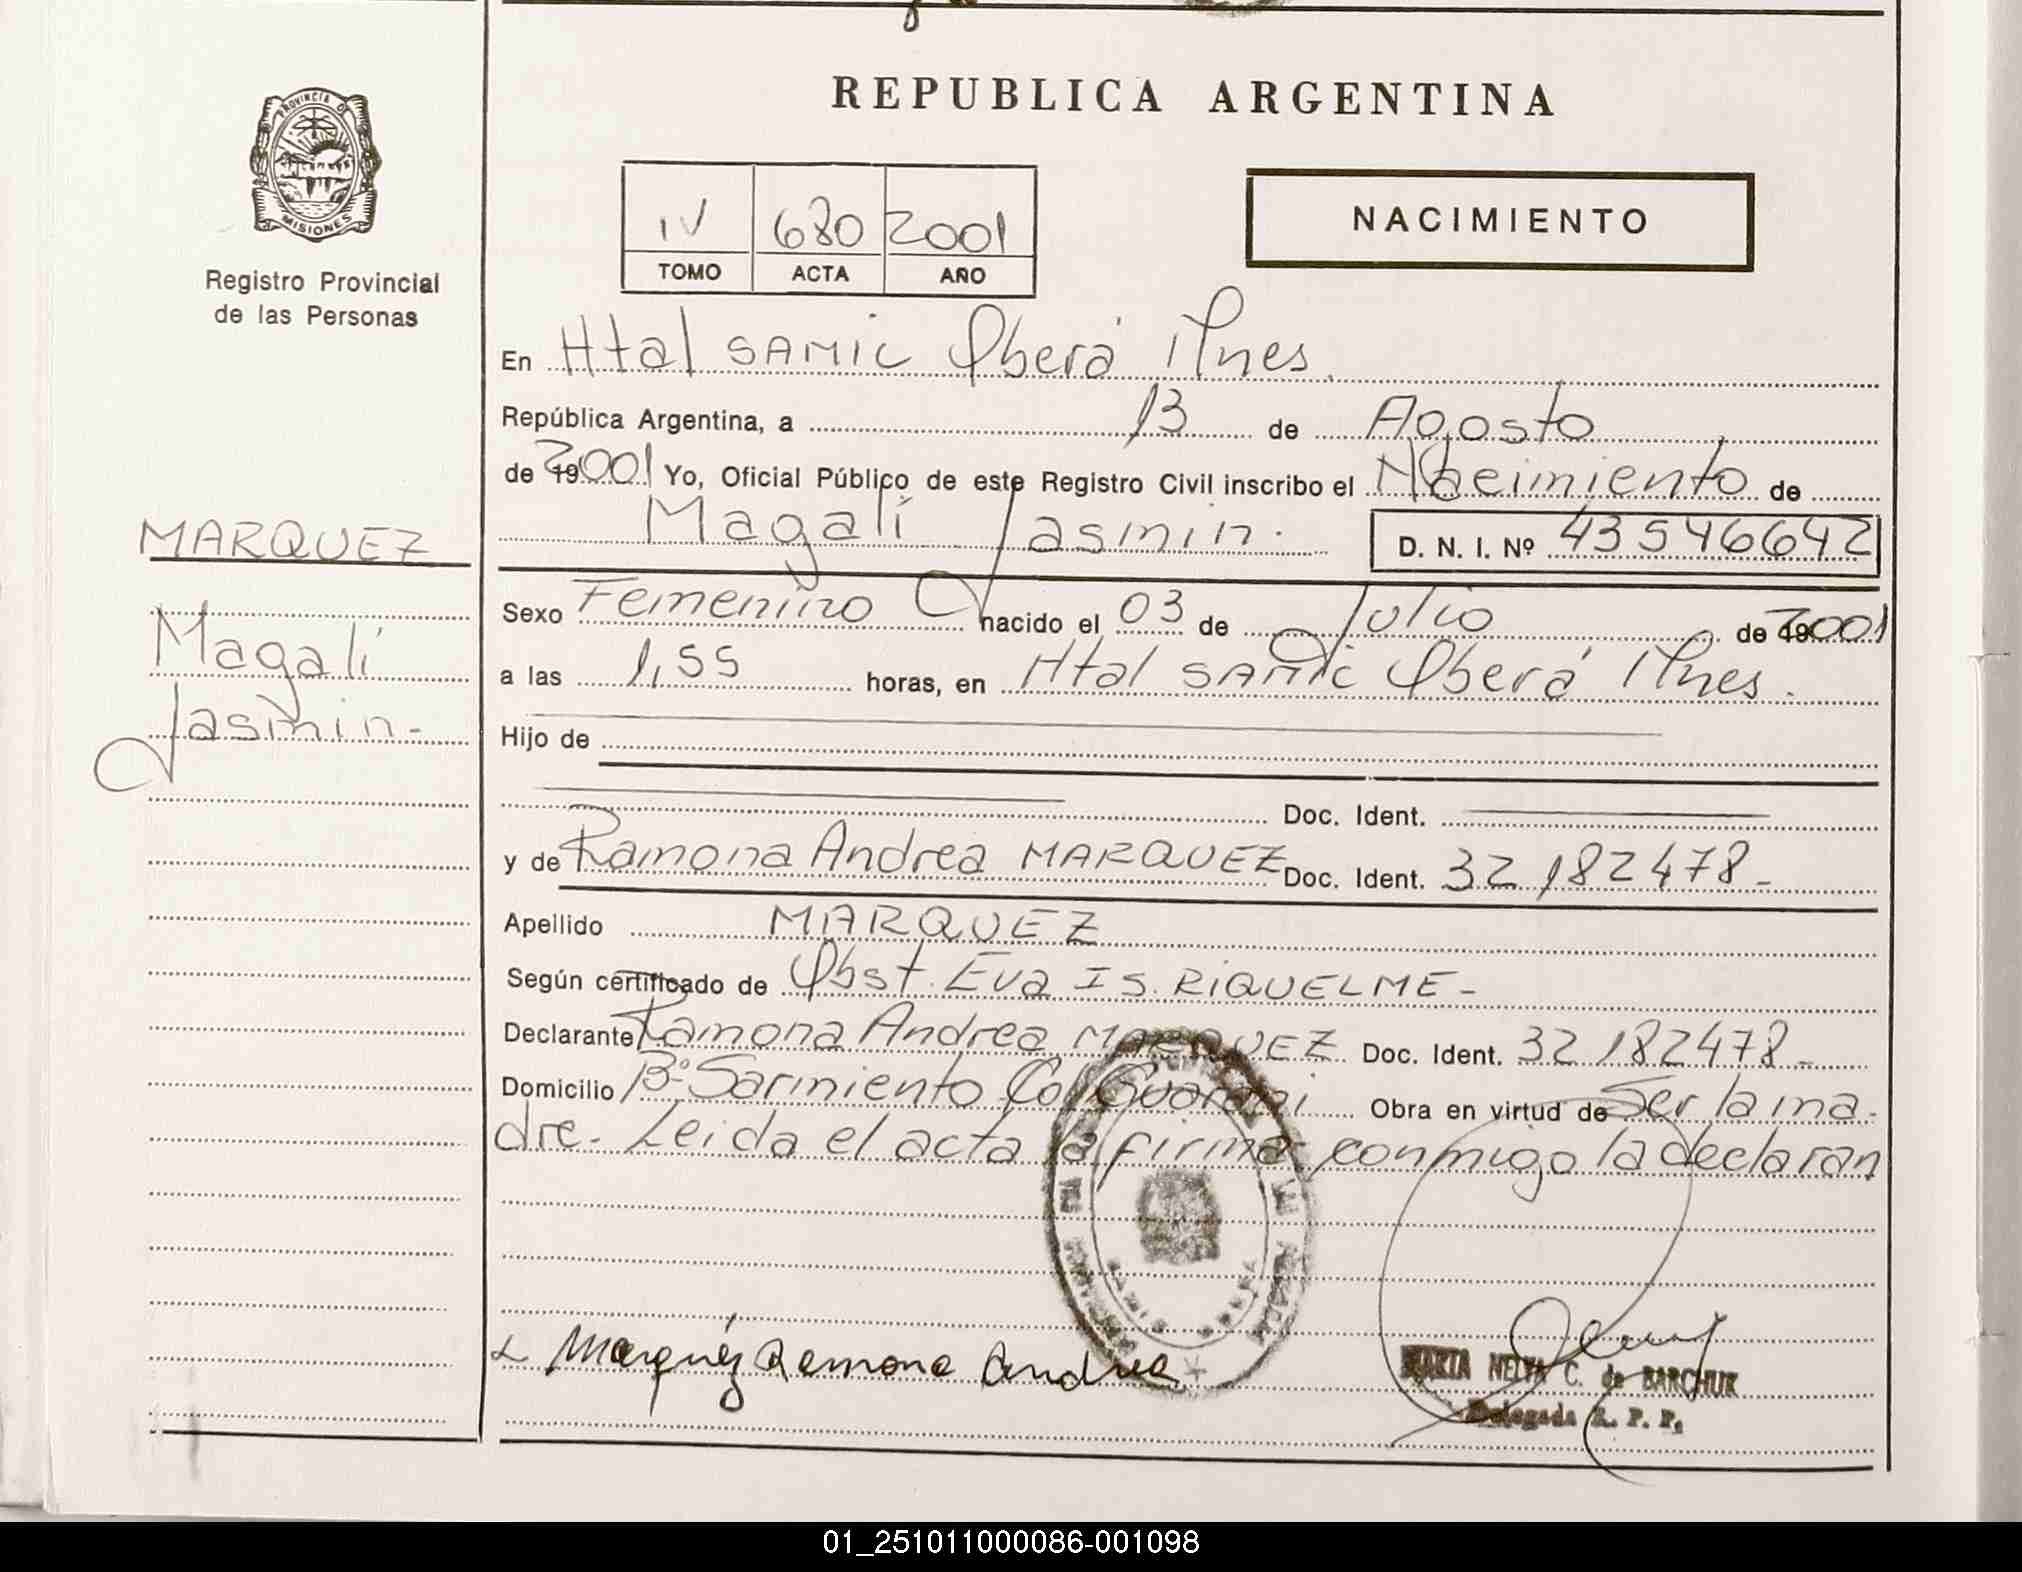 REPUBLICA ARGENTINA
PROVINCIA DE
MISIONES
Registro Provincial
de las Personas
IV 680 2001
TOMO ACTA AÑO
NACIMIENTO
En Htal SAMIC Oberá Mnes.
República Argentina, a 13 de Agosto
de 192001 Yo, Oficial Público de este Registro Civil inscribo el Nacimiento de
Magalí Jasmin. D. N. I. Nº 43546642
MARQUEZ
Magalí
Jasmin-
Sexo Femenino nacido el 03 de Julio de 192001
a las 1,55 horas, en Htal SAMIC Oberá Mnes.
Hijo de
Doc. Ident.
y de Ramona Andrea MARQUEZ Doc. Ident. 32182478-
Apellido MARQUEZ
Según certificado de Obst. Eva IS. RIQUELME-
Declarante Ramona Andrea MARQUEZ Doc. Ident. 32182478-
Domicilio Bº Sarmiento Col Guarani Obra en virtud de Ser la ma-
dre- Leida el acta la firma conmigo la declaran
Marquéz Ramona Andrea
MARTA NELYA C. de BARCHUK
Delegada R. P. P.
01_251011000086-001098